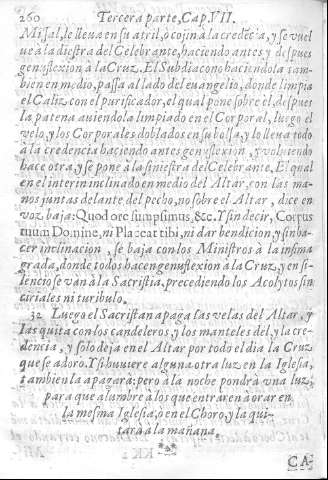 260 Tercera parte, Cap. VII.
Missal, le lleua en su atril, ò cojin a la credẽcia, y se vuel
ue a la diestra del Celebrante, haciendo antes y despues
genuflexion à la Cruz. El Subdiacono haciendola tam-
bien en medio, passa al lado del euangelio, donde limpia
el Caliz con el purificador, el qual pone sobre èl, despues
la patena auiendola limpiado en el Corporal, luego el
velo, y los Corporales doblados en su bolsa, y lo lleua todo
à la credencia haciendo antes genuflexion, y voluiendo
hace otra, y se pone à la siniestra del Celebrante. El qual
en el interin inclinado en medio del Altar, con las ma-
nos juntas delante del pecho, no sobre el Altar, dice en
voz baja: Quod ore sumpsimus, &c. Y sin decir, Corpus
tuum Domine, ni Placeat tibi, ni dar bendicion, y sin ha-
cer inclinacion, se baja con los Ministros à la infima
grada, donde todos hacen genuflexion à la Cruz, y en si-
lencio se van à la Sacristia, precediendo los Acolytos sin
ciriales ni turibulo.
32 Luego el Sacristan apaga las velas del Altar, y
las quita con los candeleros, y los manteles del, y la cre-
dencia, y solo deja en el Altar por todo el dia la Cruz
que se adorò. Y si huuiere alguna otra luz en la Iglesia,
tambien la apagarà; pero à la noche pondrà una luz,
para que alumbre à los que entraren à orar en
la mesma Iglesia, ò en el Choro, y la qui-
tarà à la mañana.
CA